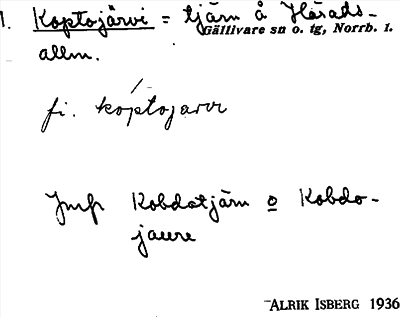 1. Koptojärvi = tjärn å Härads-
Gällivare sn o. tg, Norrb. l.
allm.
fi. koptojarvi
Jmfr Kobdotjärn o Kobdo-
jaure
ALRIK ISBERG 1936